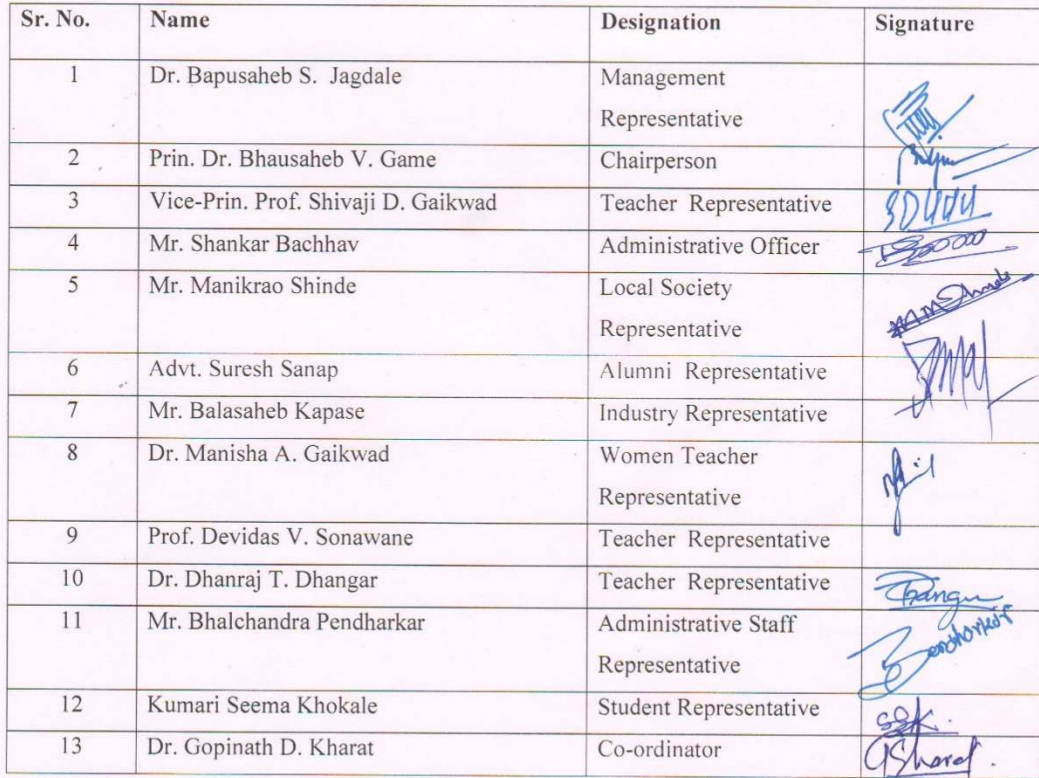 Sr. No. Name Designation Signature
1 Dr. Bapusaheb S. Jagdale Management
Representative
2 Prin. Dr. Bhausaheb V. Game Chairperson
3 Vice-Prin. Prof. Shivaji D. Gaikwad Teacher Representative
4 Mr. Shankar Bachhav Administrative Officer
5 Mr. Manikrao Shinde Local Society
Representative
6 Advt. Suresh Sanap Alumni Representative
7 Mr. Balasaheb Kapase Industry Representative
8 Dr. Manisha A. Gaikwad Women Teacher
Representative
9 Prof. Devidas V. Sonawane Teacher Representative
10 Dr. Dhanraj T. Dhangar Teacher Representative
11 Mr. Bhalchandra Pendharkar Administrative Staff
Representative
12 Kumari Seema Khokale Student Representative
13 Dr. Gopinath D. Kharat Co-ordinator